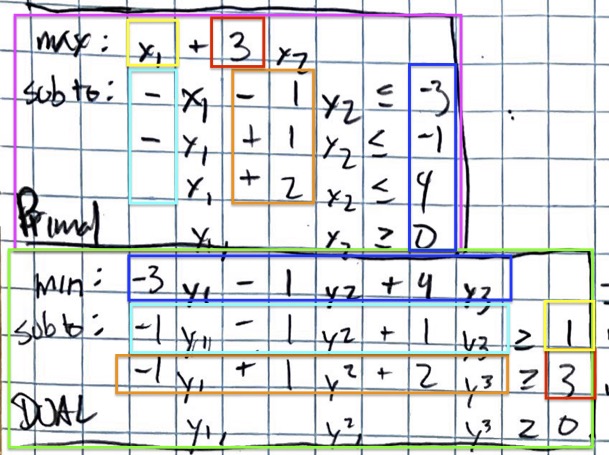 max: x₁ + 3 x₂
sub to: - x₁ - 1 x₂ ≤ -3
- x₁ + 1 x₂ ≤ -1
x₁ + 2 x₂ ≤ 4
Primal x₁, x₂ ≥ 0
min: -3 y₁ - 1 y₂ + 4 y₃
sub to: -1 y₁ - 1 y₂ + 1 y₃ ≥ 1
-1 y₁ + 1 y₂ + 2 y₃ ≥ 3
DUAL y₁, y₂, y₃ ≥ 0